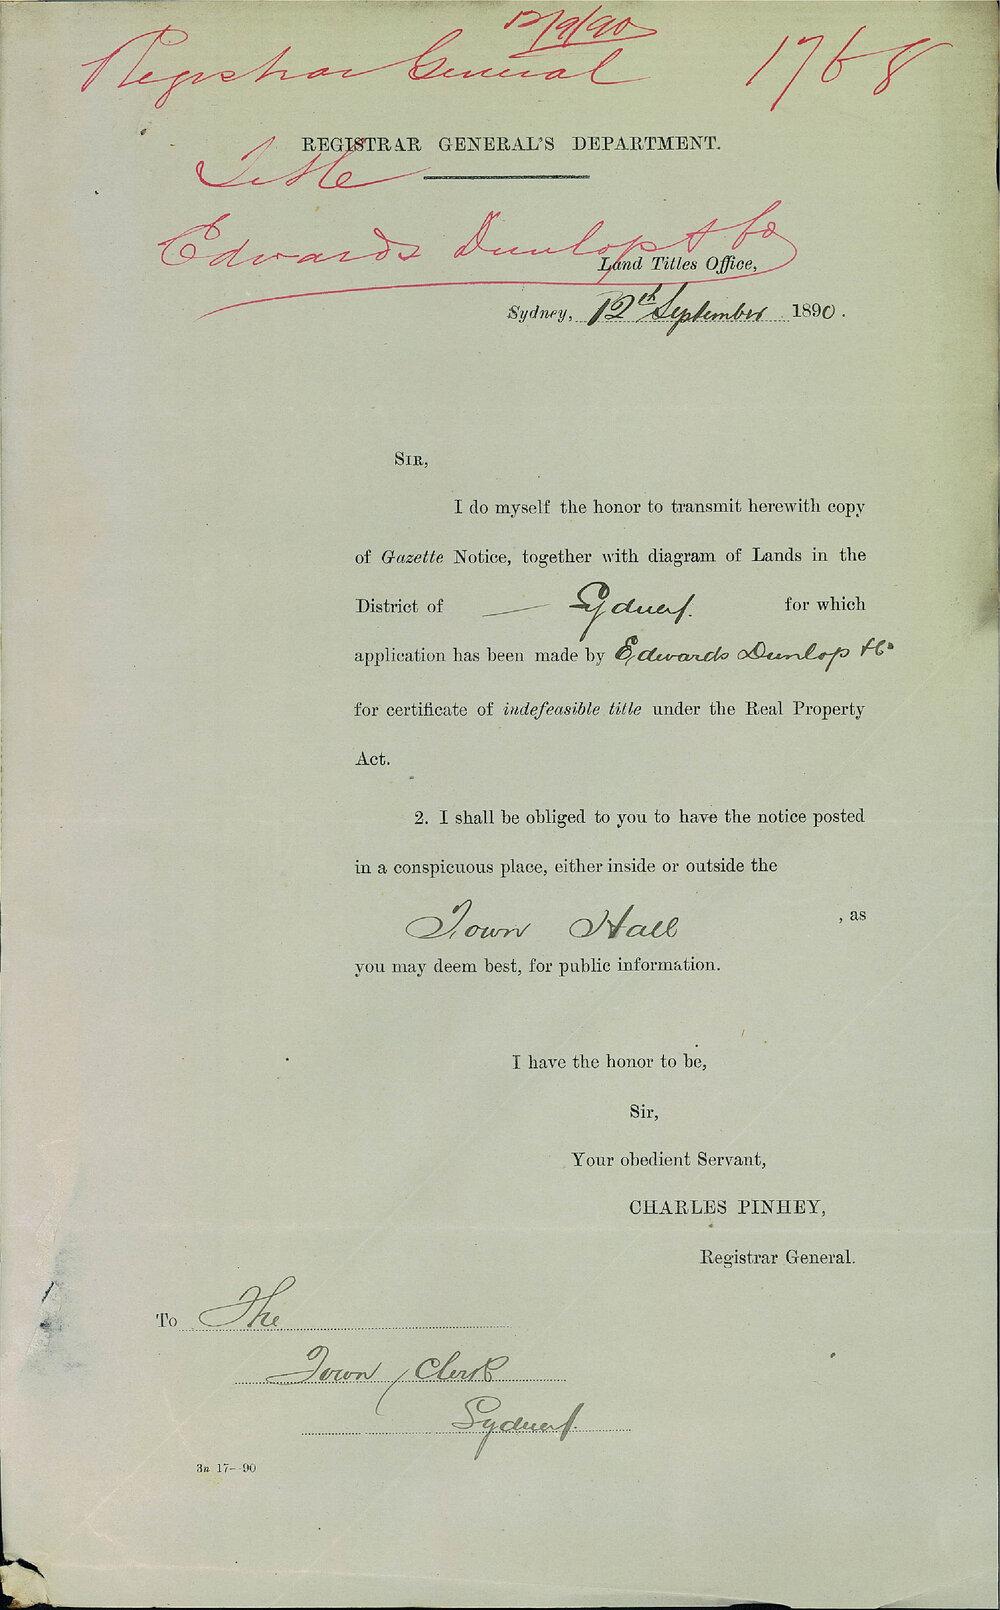 12/9/90
Registrar General 1768
REGISTRAR GENERAL'S DEPARTMENT.
Title
Edwards Dunlop & Co
Land Titles Office,
Sydney, 12th September 1890.
SIR,
I do myself the honor to transmit herewith copy
of Gazette Notice, together with diagram of Lands in the
District of — Sydney. for which
application has been made by Edwards Dunlop & Co
for certificate of indefeasible title under the Real Property
Act.
2. I shall be obliged to you to have the notice posted
in a conspicuous place, either inside or outside the
Town Hall , as
you may deem best, for public information.
I have the honor to be,
Sir,
Your obedient Servant,
CHARLES PINHEY,
Registrar General.
To The
Town Clerk
Sydney.
3n 17--90